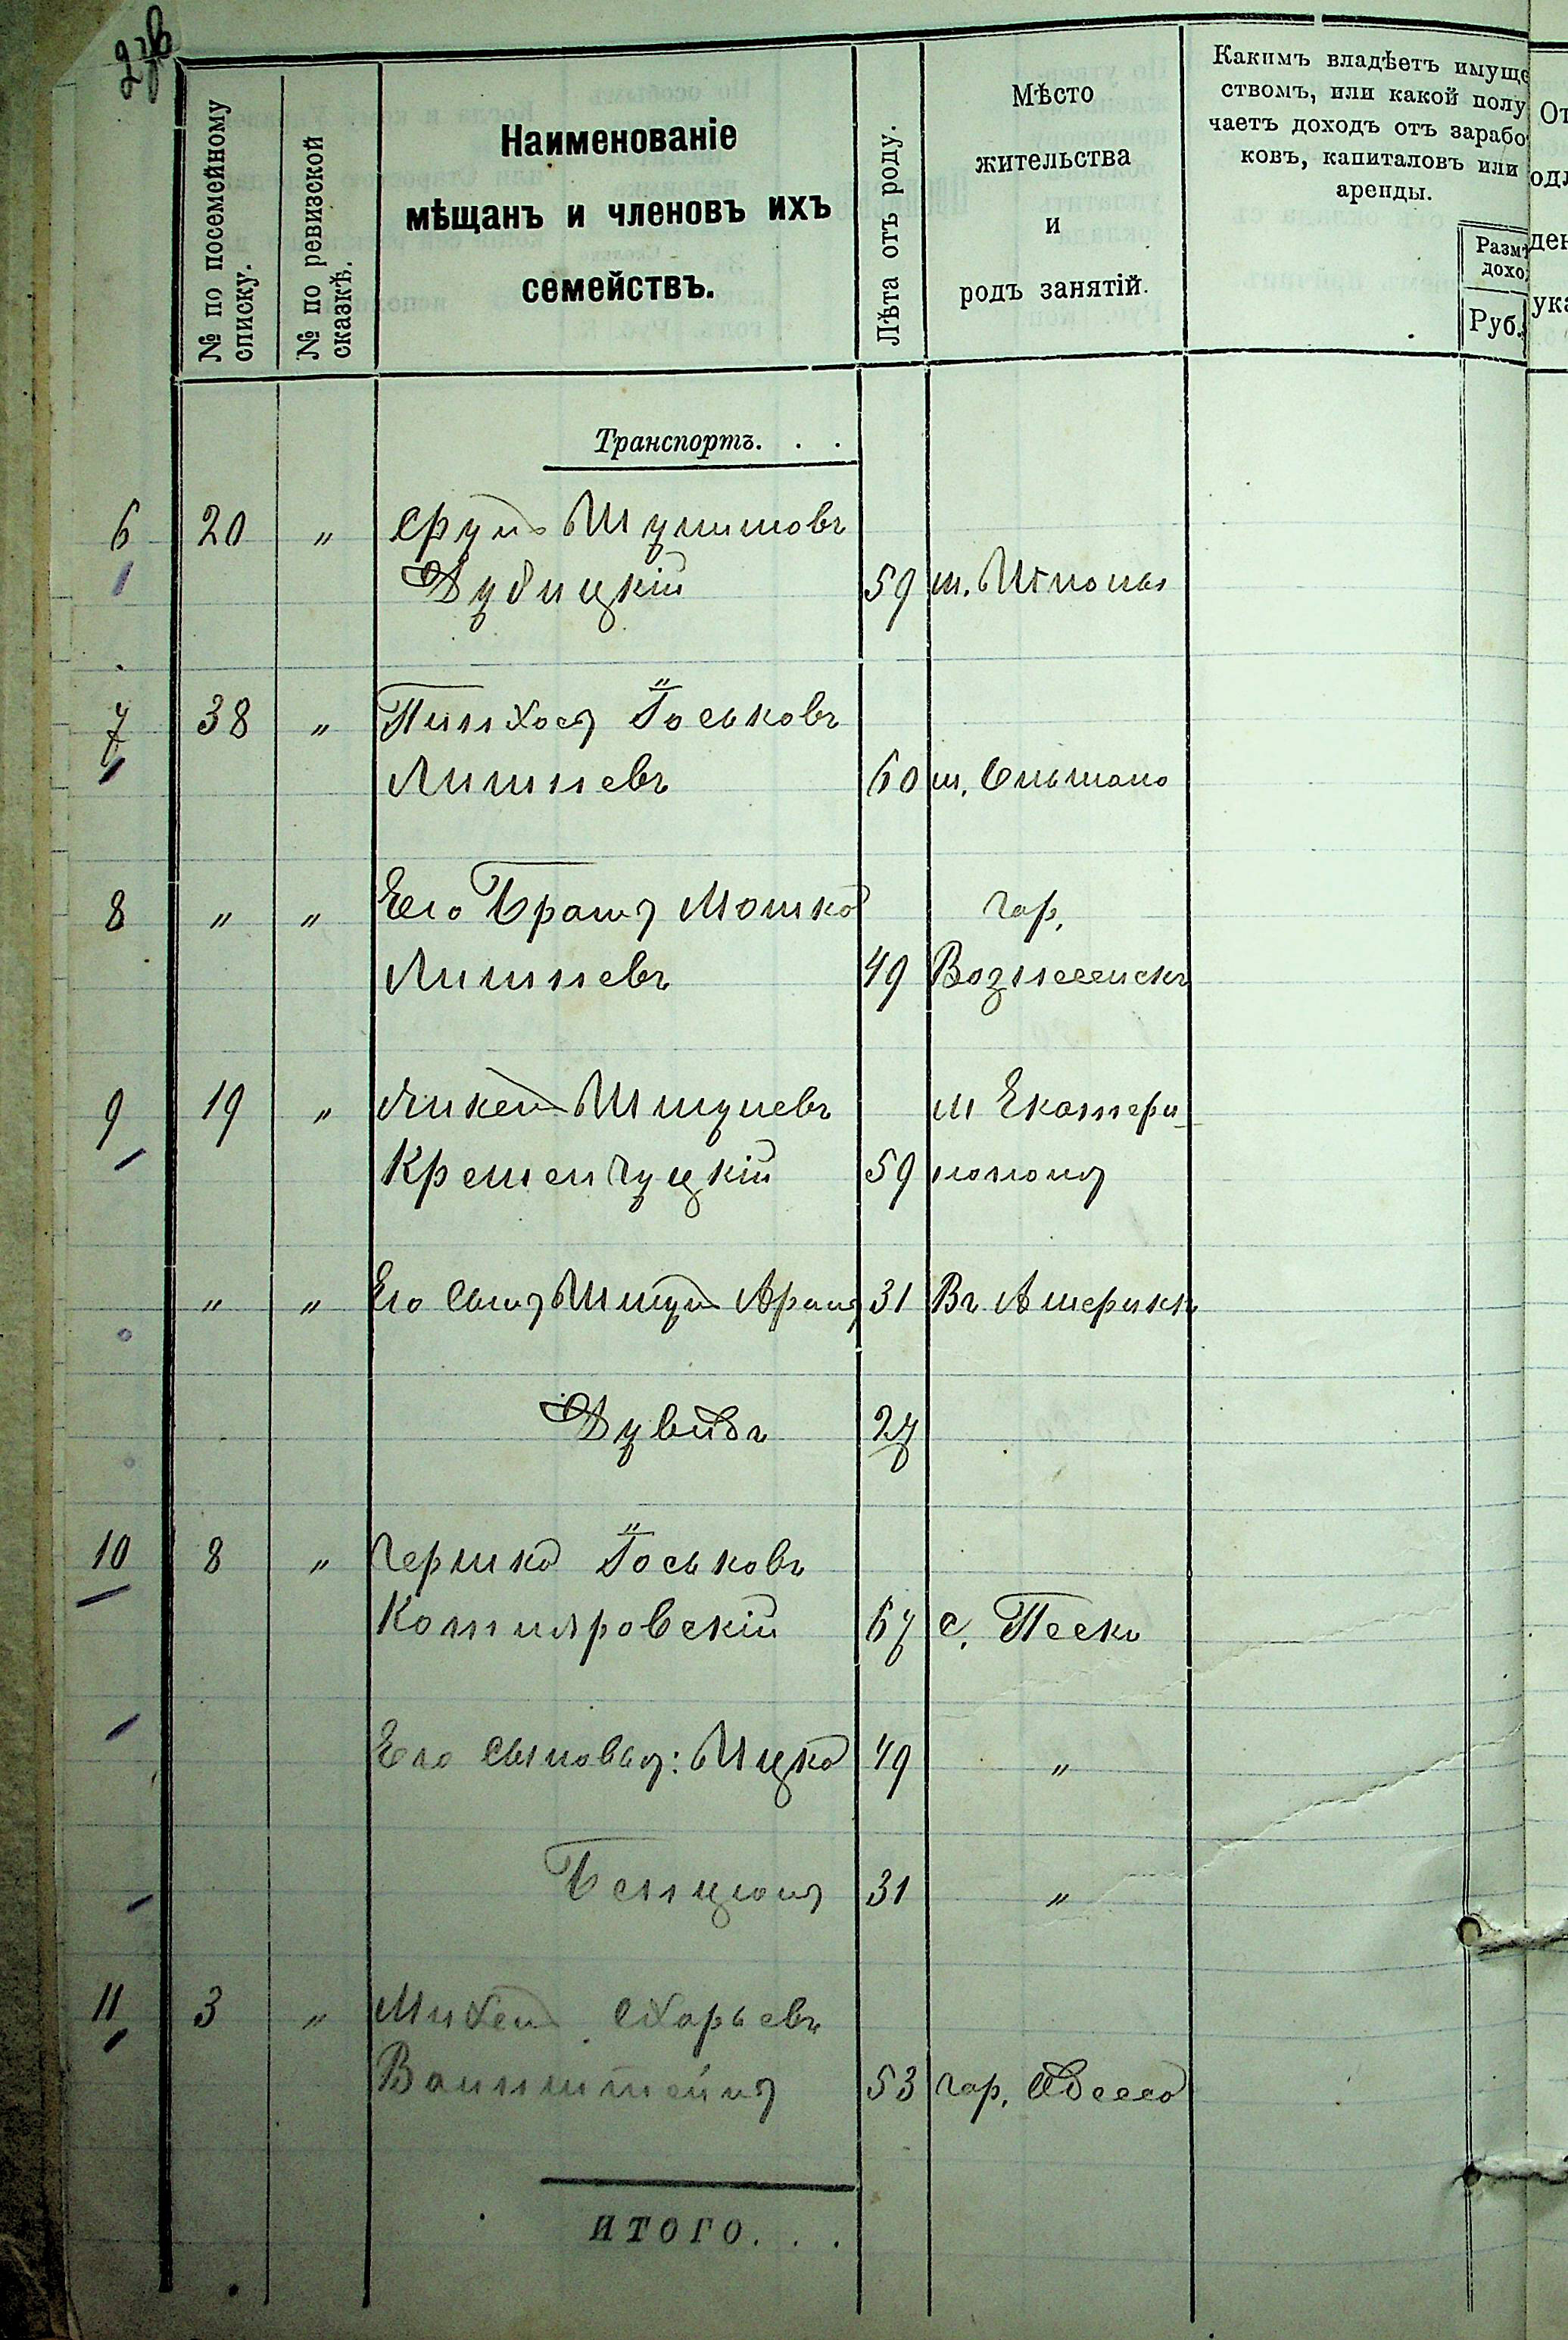 № по посемейному
списку.
№ по ревизской
сказкѣ.
Наименованіе
мѣщанъ и членовъ ихъ
семействъ.
Лѣта отъ роду.
Мѣсто
жительства
и
родъ занятій.
Какимъ владѣетъ имуще
ствомъ, или какой полу
чаетъ доходъ отъ зарабо
ковъ, капиталовъ или
аренды.
Разм
дохо
Руб.
Транспортъ. . .
6 20 " Сруль Шулимовъ
Дубицкій 59 м. Шпола
7 38 " Пинхосъ Іоськовъ
Лишневъ 60 м. Ольшана
8 " " Его Братъ Мошко гор.
Лишневъ 49 Вознесенскъ
9 19 " Янкель Шмулевъ м Екатери-
Кременчуцкій 59 нополь
" " Его Сынъ Шмуль Аронъ 31 Въ Америкѣ
Дувидъ 27
10 8 " Гершко Іоськовъ
Котляровскій 67 с. Пески
Его сыновья: Ицко 49 "
Бенционъ 31 "
11 3 " Михель Сухарьевъ
Ваинштейнъ 53 гор. Одесса
ИТОГО. . .